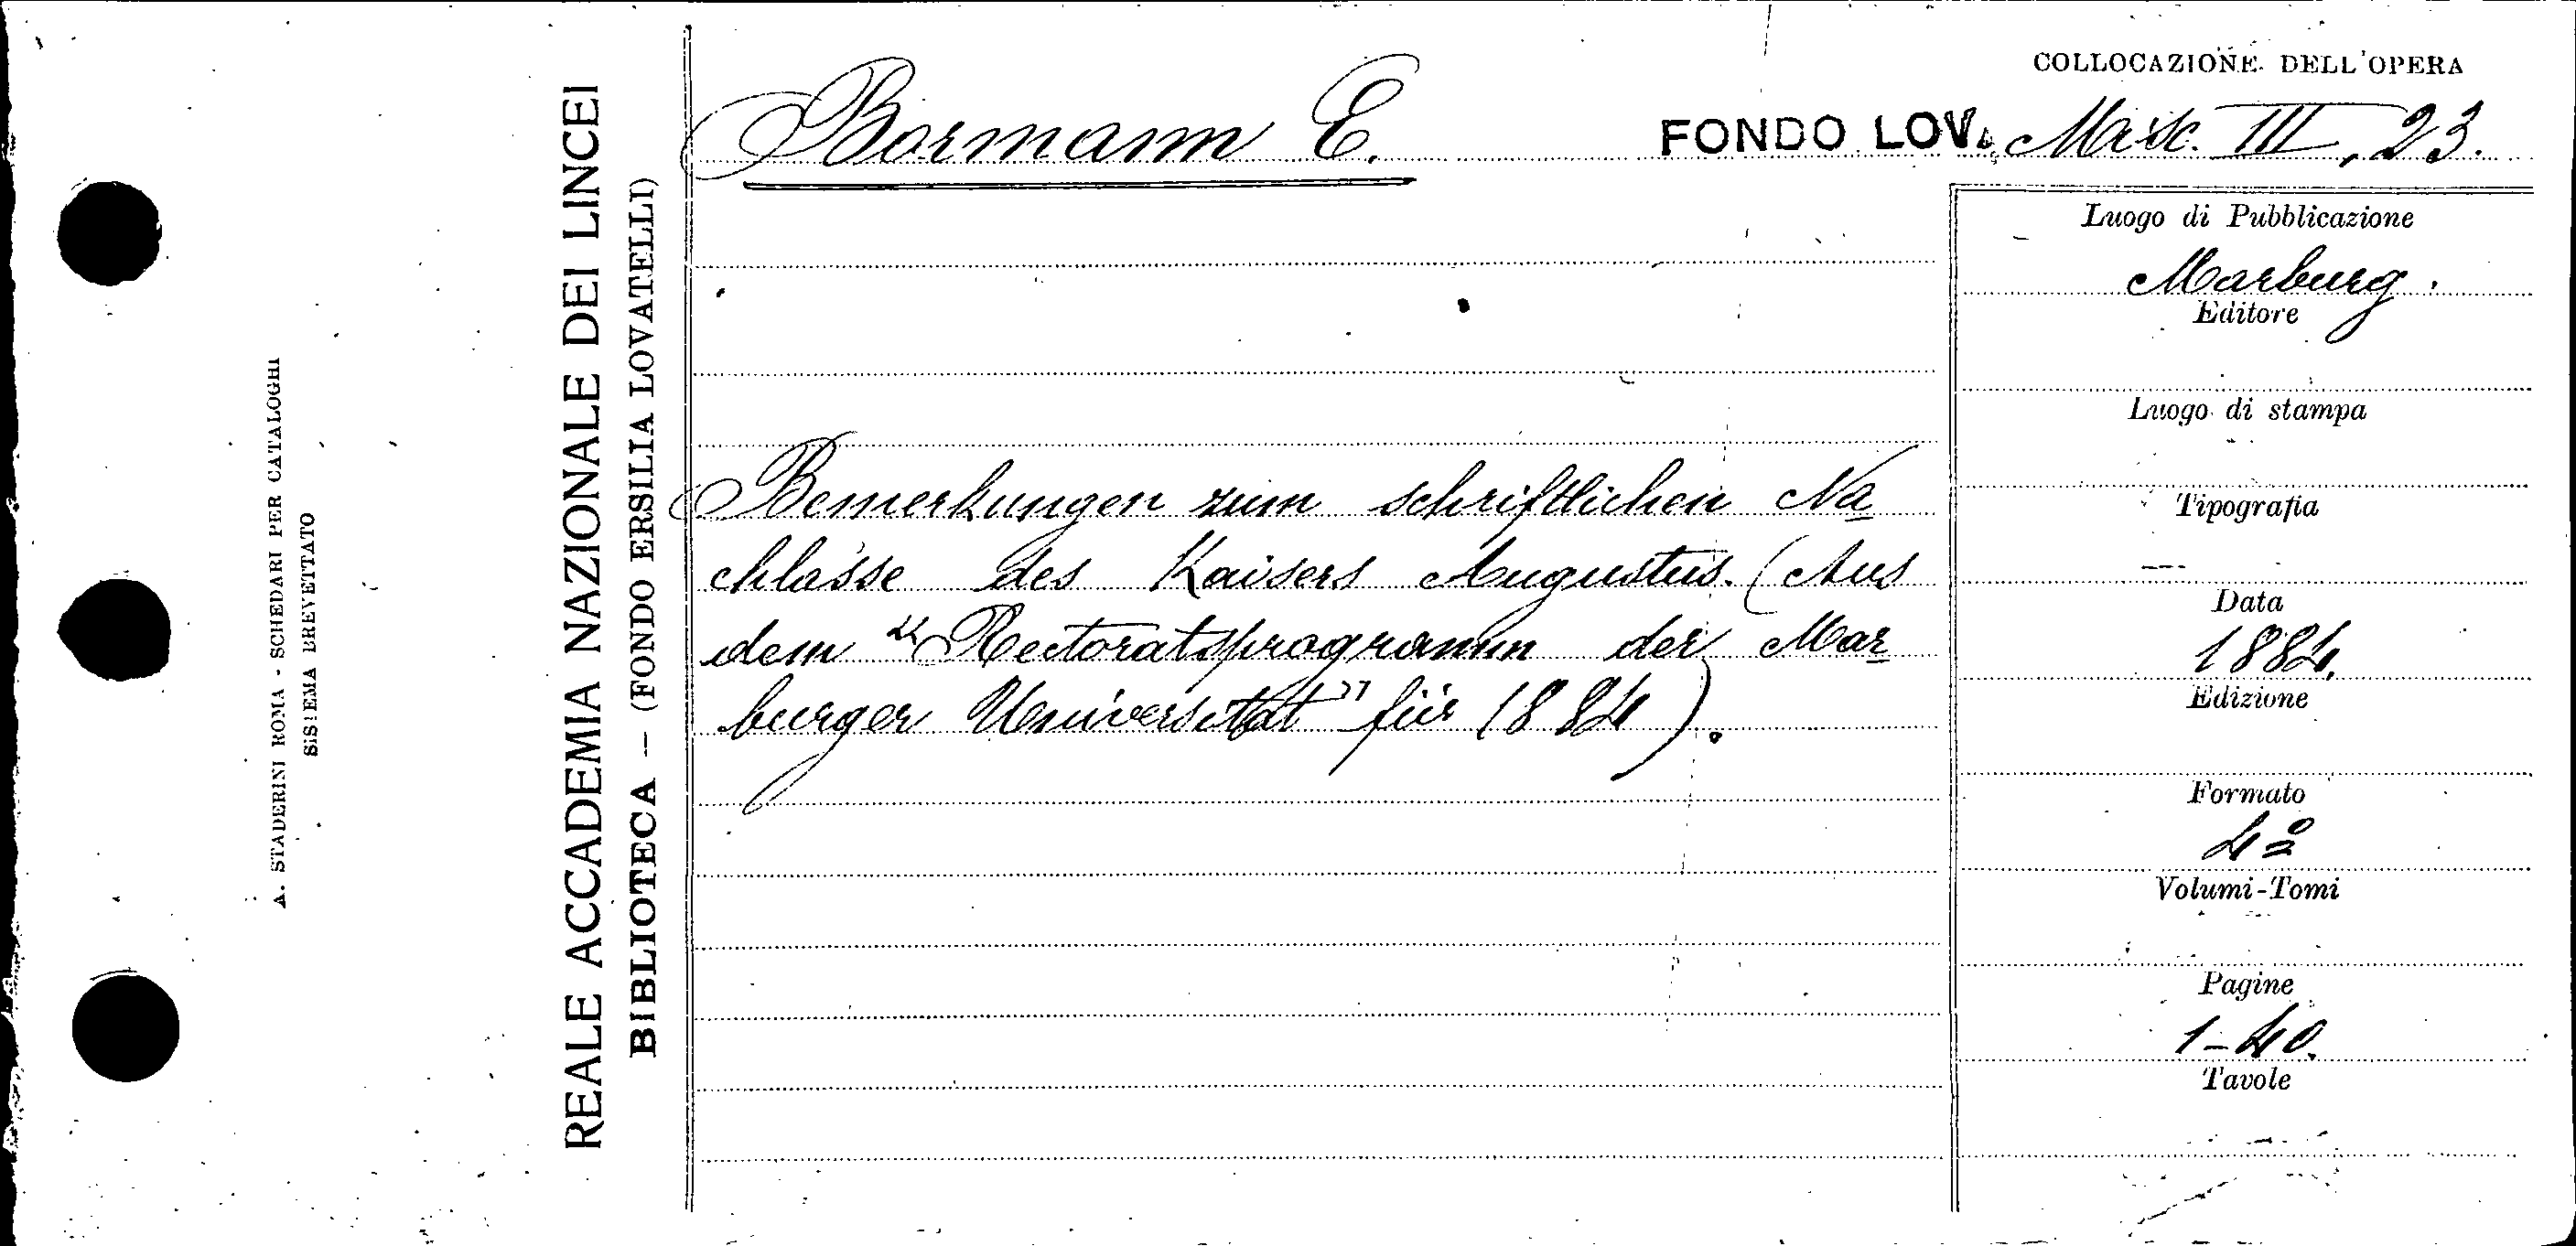 A. STADERINI ROMA - SCHEDARI PER CATALOGHI
SISTEMA BREVETTATO
REALE ACCADEMIA NAZIONALE DEI LINCEI
BIBLIOTECA — (FONDO ERSILIA LOVATELLI)
Bormann E.
COLLOCAZIONE DELL'OPERA
FONDO LOV. Misc. III, 23.
Bemerkungen zum schriftlichen Na
chlasse des Kaisers Augustus. (Aus
dem "Rectoratsprogramm der Mar
burger Universität" für 1884).
Luogo di Pubblicazione
Marburg.
Editore
Luogo di stampa
Tipografia
Data
1884.
Edizione
Formato
4º
Volumi-Tomi
Pagine
1-40.
Tavole